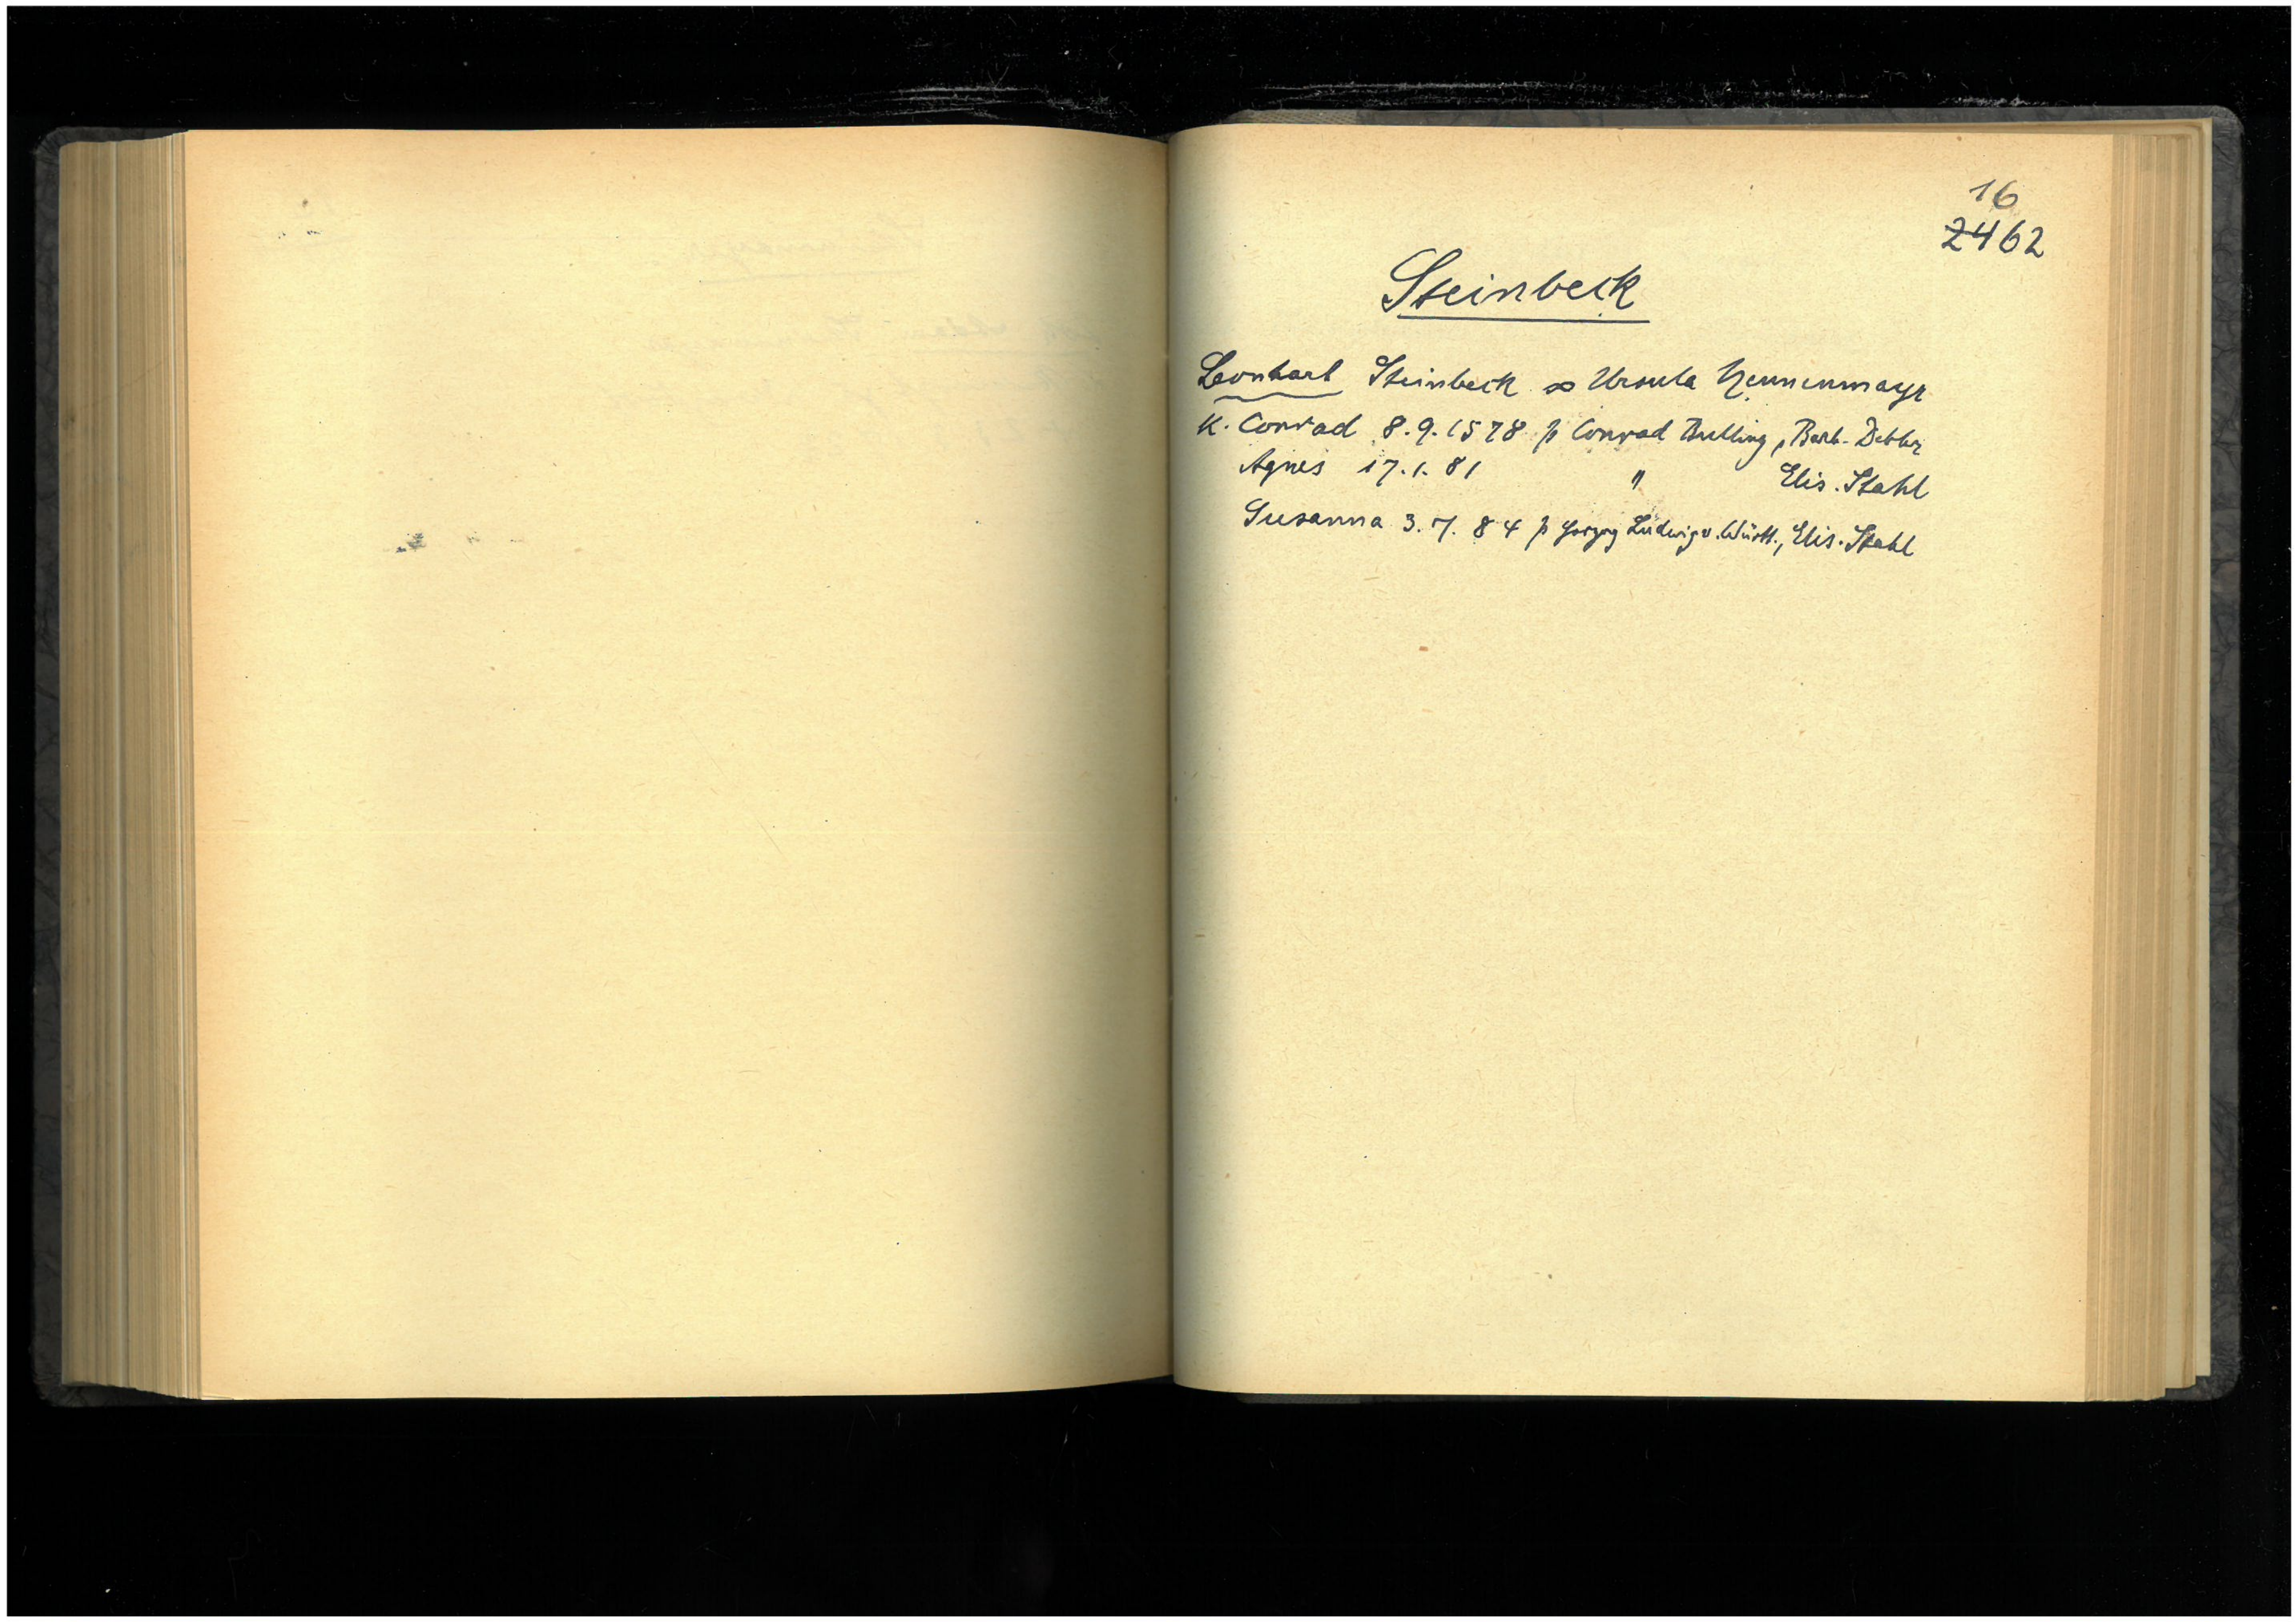 16
2462
Steinbeck
Leonhart Steinbeck ∞ Ursula Nennenmayr
K. Conrad 8.9.1578 p Conrad Bulling, Barb. Debler
Agnes 17.1.81 " Elis. Stahl
Susanna 3.7.84 p Herzog Ludwig v. Württ., Elis. Stahl